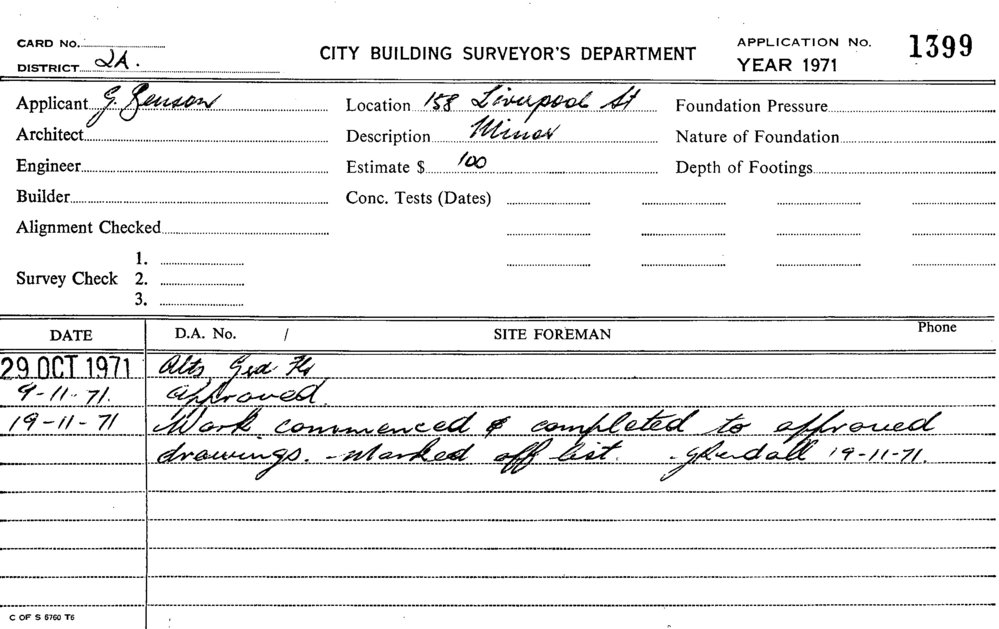 CARD No.
DISTRICT 2A.
CITY BUILDING SURVEYOR'S DEPARTMENT
APPLICATION No. 1399
YEAR 1971
Applicant G. Benson Location 158 Liverpool St Foundation Pressure
Architect Description Minor Nature of Foundation
Engineer Estimate $ 100 Depth of Footings
Builder Conc. Tests (Dates)
Alignment Checked
1.
Survey Check 2.
3.
DATE D.A. No. / SITE FOREMAN Phone
29 OCT 1971 Alts Grd Flr
9-11-71. approved.
19-11-71 Work commenced & completed to approved
drawings. - Marked off list. 19-11-71.
C OF S 6760 T6